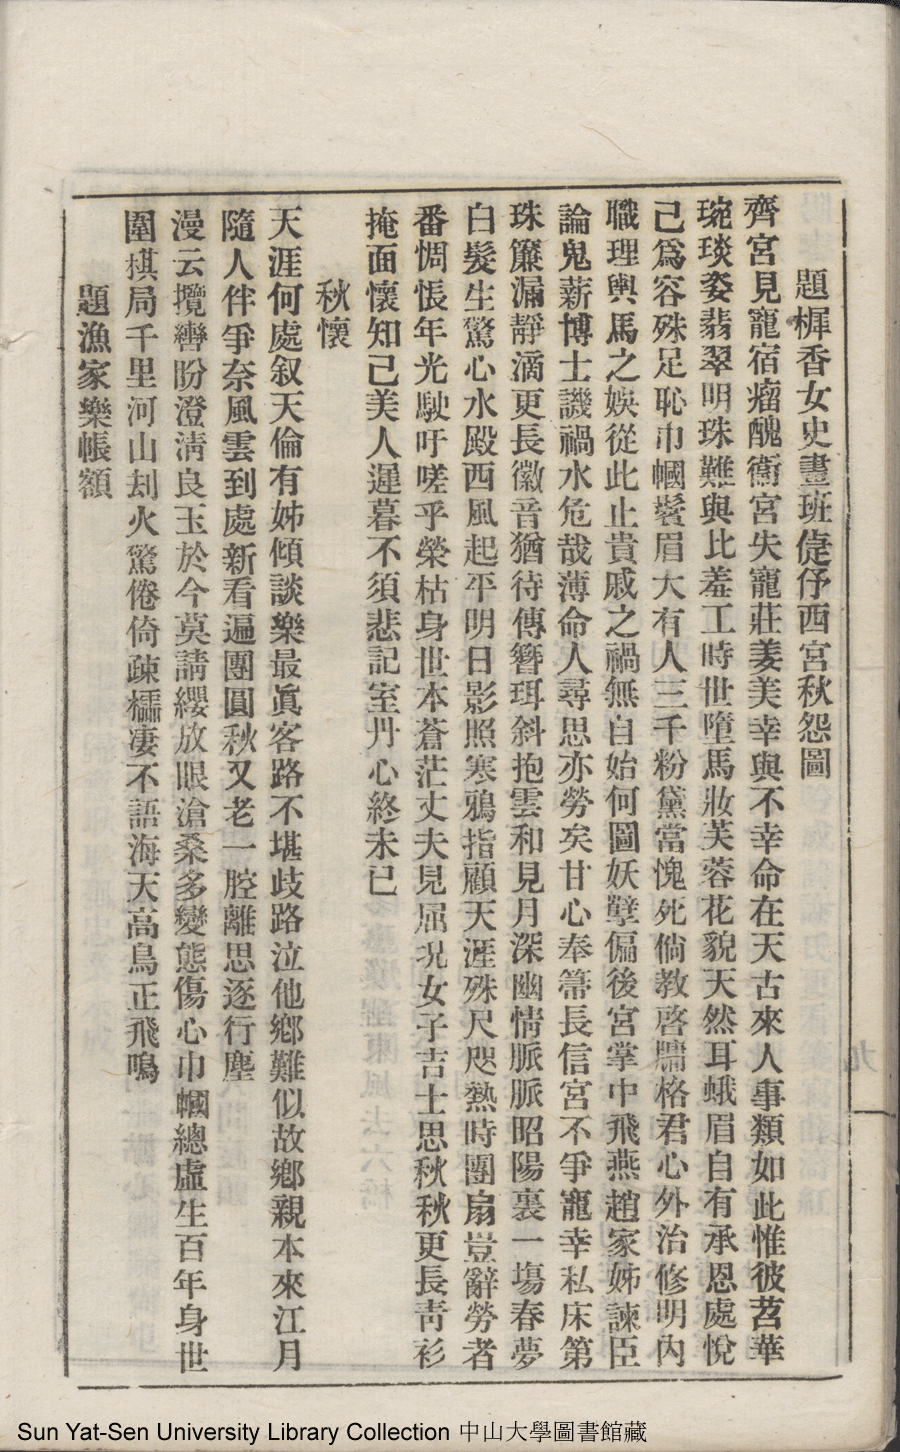 題樨香女史畫班倢伃西宮秋怨圖
齊宮見寵宿瘤醜衞宮失寵莊姜美幸與不幸命在天古來人事類如此惟彼苕華
琬琰姿翡翠明珠難與比羞工時世墮馬妝芙蓉花貌天然耳蛾眉自有承恩處悅
己爲容殊足恥巾幗鬚眉大有人三千粉黛當愧死倘教啓牖格君心外治修明內
職理輿馬之娛從此止貴戚之禍無自始何圖妖孽偏後宮掌中飛燕趙家姊諫臣
論鬼薪博士譏禍水危哉薄命人尋思亦勞矣甘心奉箒長信宮不爭寵幸私床第
珠簾漏靜滴更長徽音猶待傳簪珥斜抱雲和見月深幽情脈脈昭陽裏一塲春夢
白髮生驚心水殿西風起平明日影照寒鴉指顧天涯殊尺咫熱時團扇豈辭勞者
番惆悵年光駛吁嗟乎榮枯身世本蒼茫丈夫見屈况女子吉士思秋秋更長靑衫
掩面懷知己美人遲暮不須悲記室丹心終未已
秋懷
天涯何處叙天倫有姊傾談樂最眞客路不堪歧路泣他鄉難似故鄉親本來江月
隨人伴爭奈風雲到處新看遍團圓秋又老一腔離思逐行塵
漫云攬轡盼澄淸良玉於今莫請纓放眼滄桑多變態傷心巾幗總虛生百年身世
圍棋局千里河山刼火驚倦倚疎櫺凄不語海天高鳥正飛鳴
題漁家樂帳額
九
Sun Yat-Sen University Library Collection 中山大學圖書館藏